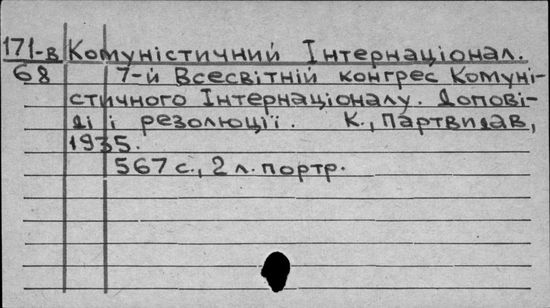 171-в Комуністичний Інтернаціонал.
68 7-й Всесвітній конгрес Комуні-
стичного Інтернаціоналу. Допові-
ді і резолюції. К., Партвидав,
1935.
567 с., 2 л. портр.